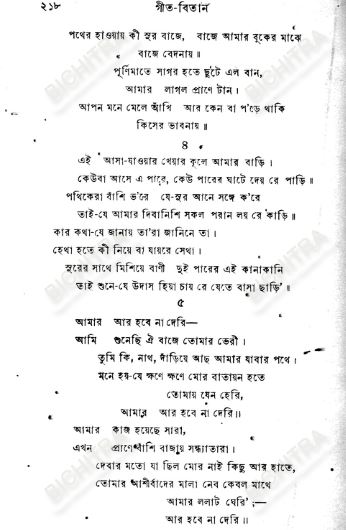 ২১৮ গীত-বিতান
পথের হাওয়ায় কী সুর বাজে, বাজে আমার বুকের মাঝে
বাজে বেদনায়॥
পূর্ণিমাতে সাগর হতে ছুটে এল বান,
আমার লাগল প্রাণে টান।
আপন মনে মেলে আঁখি আর কেন বা প'ড়ে থাকি
কিসের ভাবনায়॥
৪
এই আসা-যাওয়ার খেয়ার কূলে আমার বাড়ি।
কেউবা আসে এ পারে, কেউ পারের ঘাটে দেয় রে পাড়ি॥
পথিকেরা বাঁশি ভ'রে যে-সুর আনে সঙ্গে ক'রে
তাই-যে আমার দিবানিশি সকল পরান লয় রে কাড়ি॥
কার কথা-যে জানায় তা'রা জানিনে তা।
হেথা হতে কী নিয়ে বা যায়রে সেথা।
সুরের সাথে মিশিয়ে বাণী দুই পারের এই কানাকানি
তাই শুনে-যে উদাস হিয়া চায় রে যেতে বাসা ছাড়ি'॥
৫
আমার আর হবে না দেরি—
আমি শুনেছি ঐ বাজে তোমার ভেরী।
তুমি কি, নাথ, দাঁড়িয়ে আছ আমার যাবার পথে।
মনে হয়-যে ক্ষণে ক্ষণে মোর বাতায়ন হতে
তোমায় যেন হেরি,
আমার আর হবে না দেরি॥
আমার কাজ হয়েছে সারা,
এখন প্রাণে বাঁশি বাজায় সন্ধ্যাতারা।
দেবার মতো যা ছিল মোর নাই কিছু আর হাতে,
তোমার আশীর্বাদের মালা নেব কেবল মাথে
আমার ললাট ঘেরি';—
আর হবে না দেরি॥
BICHITRA